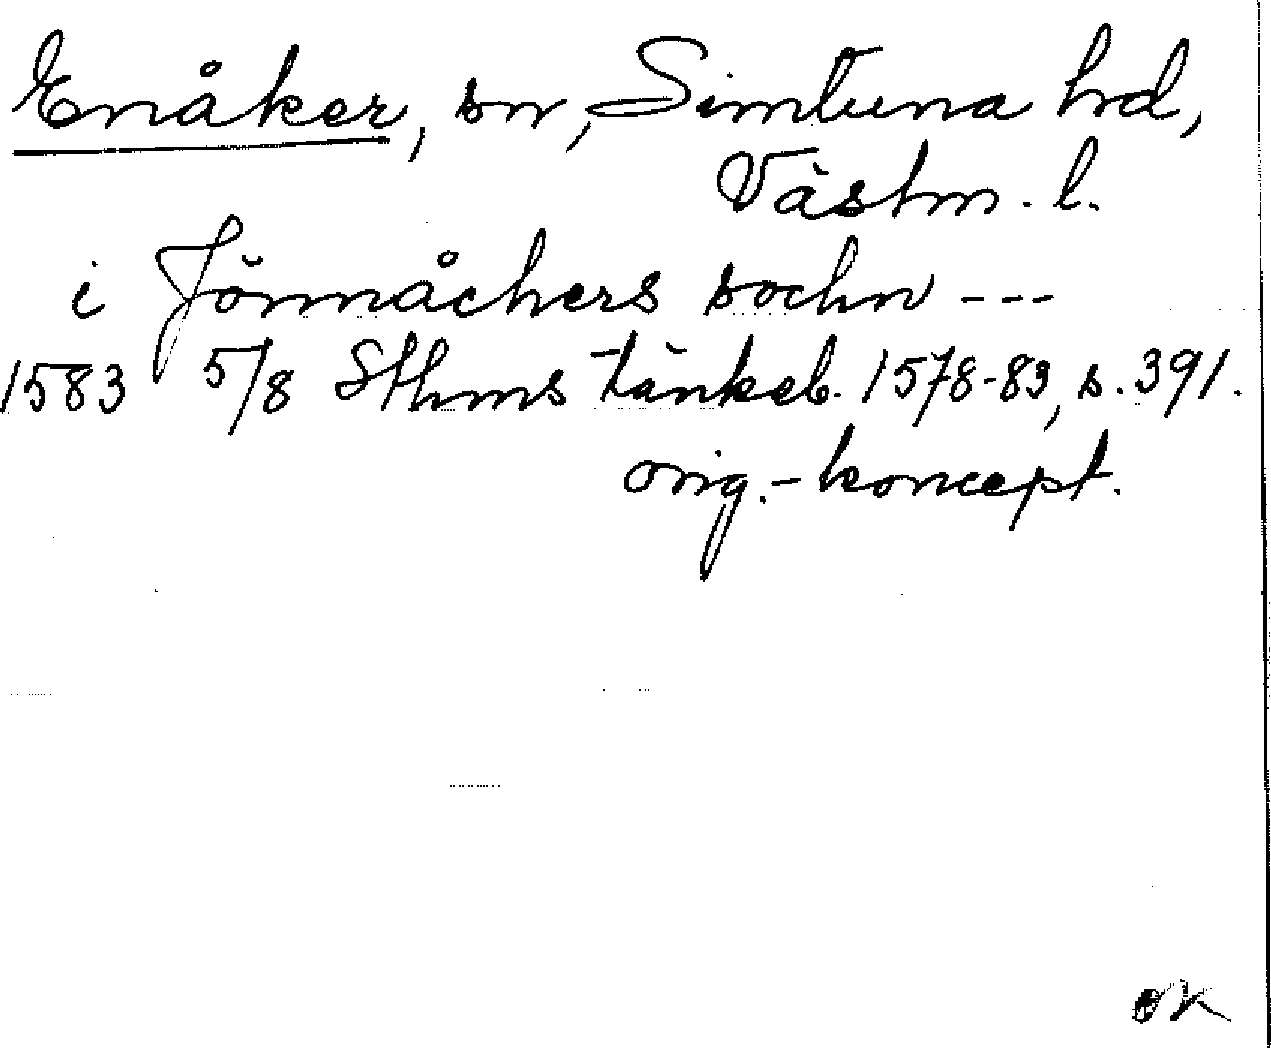 Enåker, sn, Simtuna hd,
Västm. l.
i Jönnåchers sochn ---
1583 5/8 Sthms tänkeb. 1578-83, s. 391.
orig.-koncept.
OK